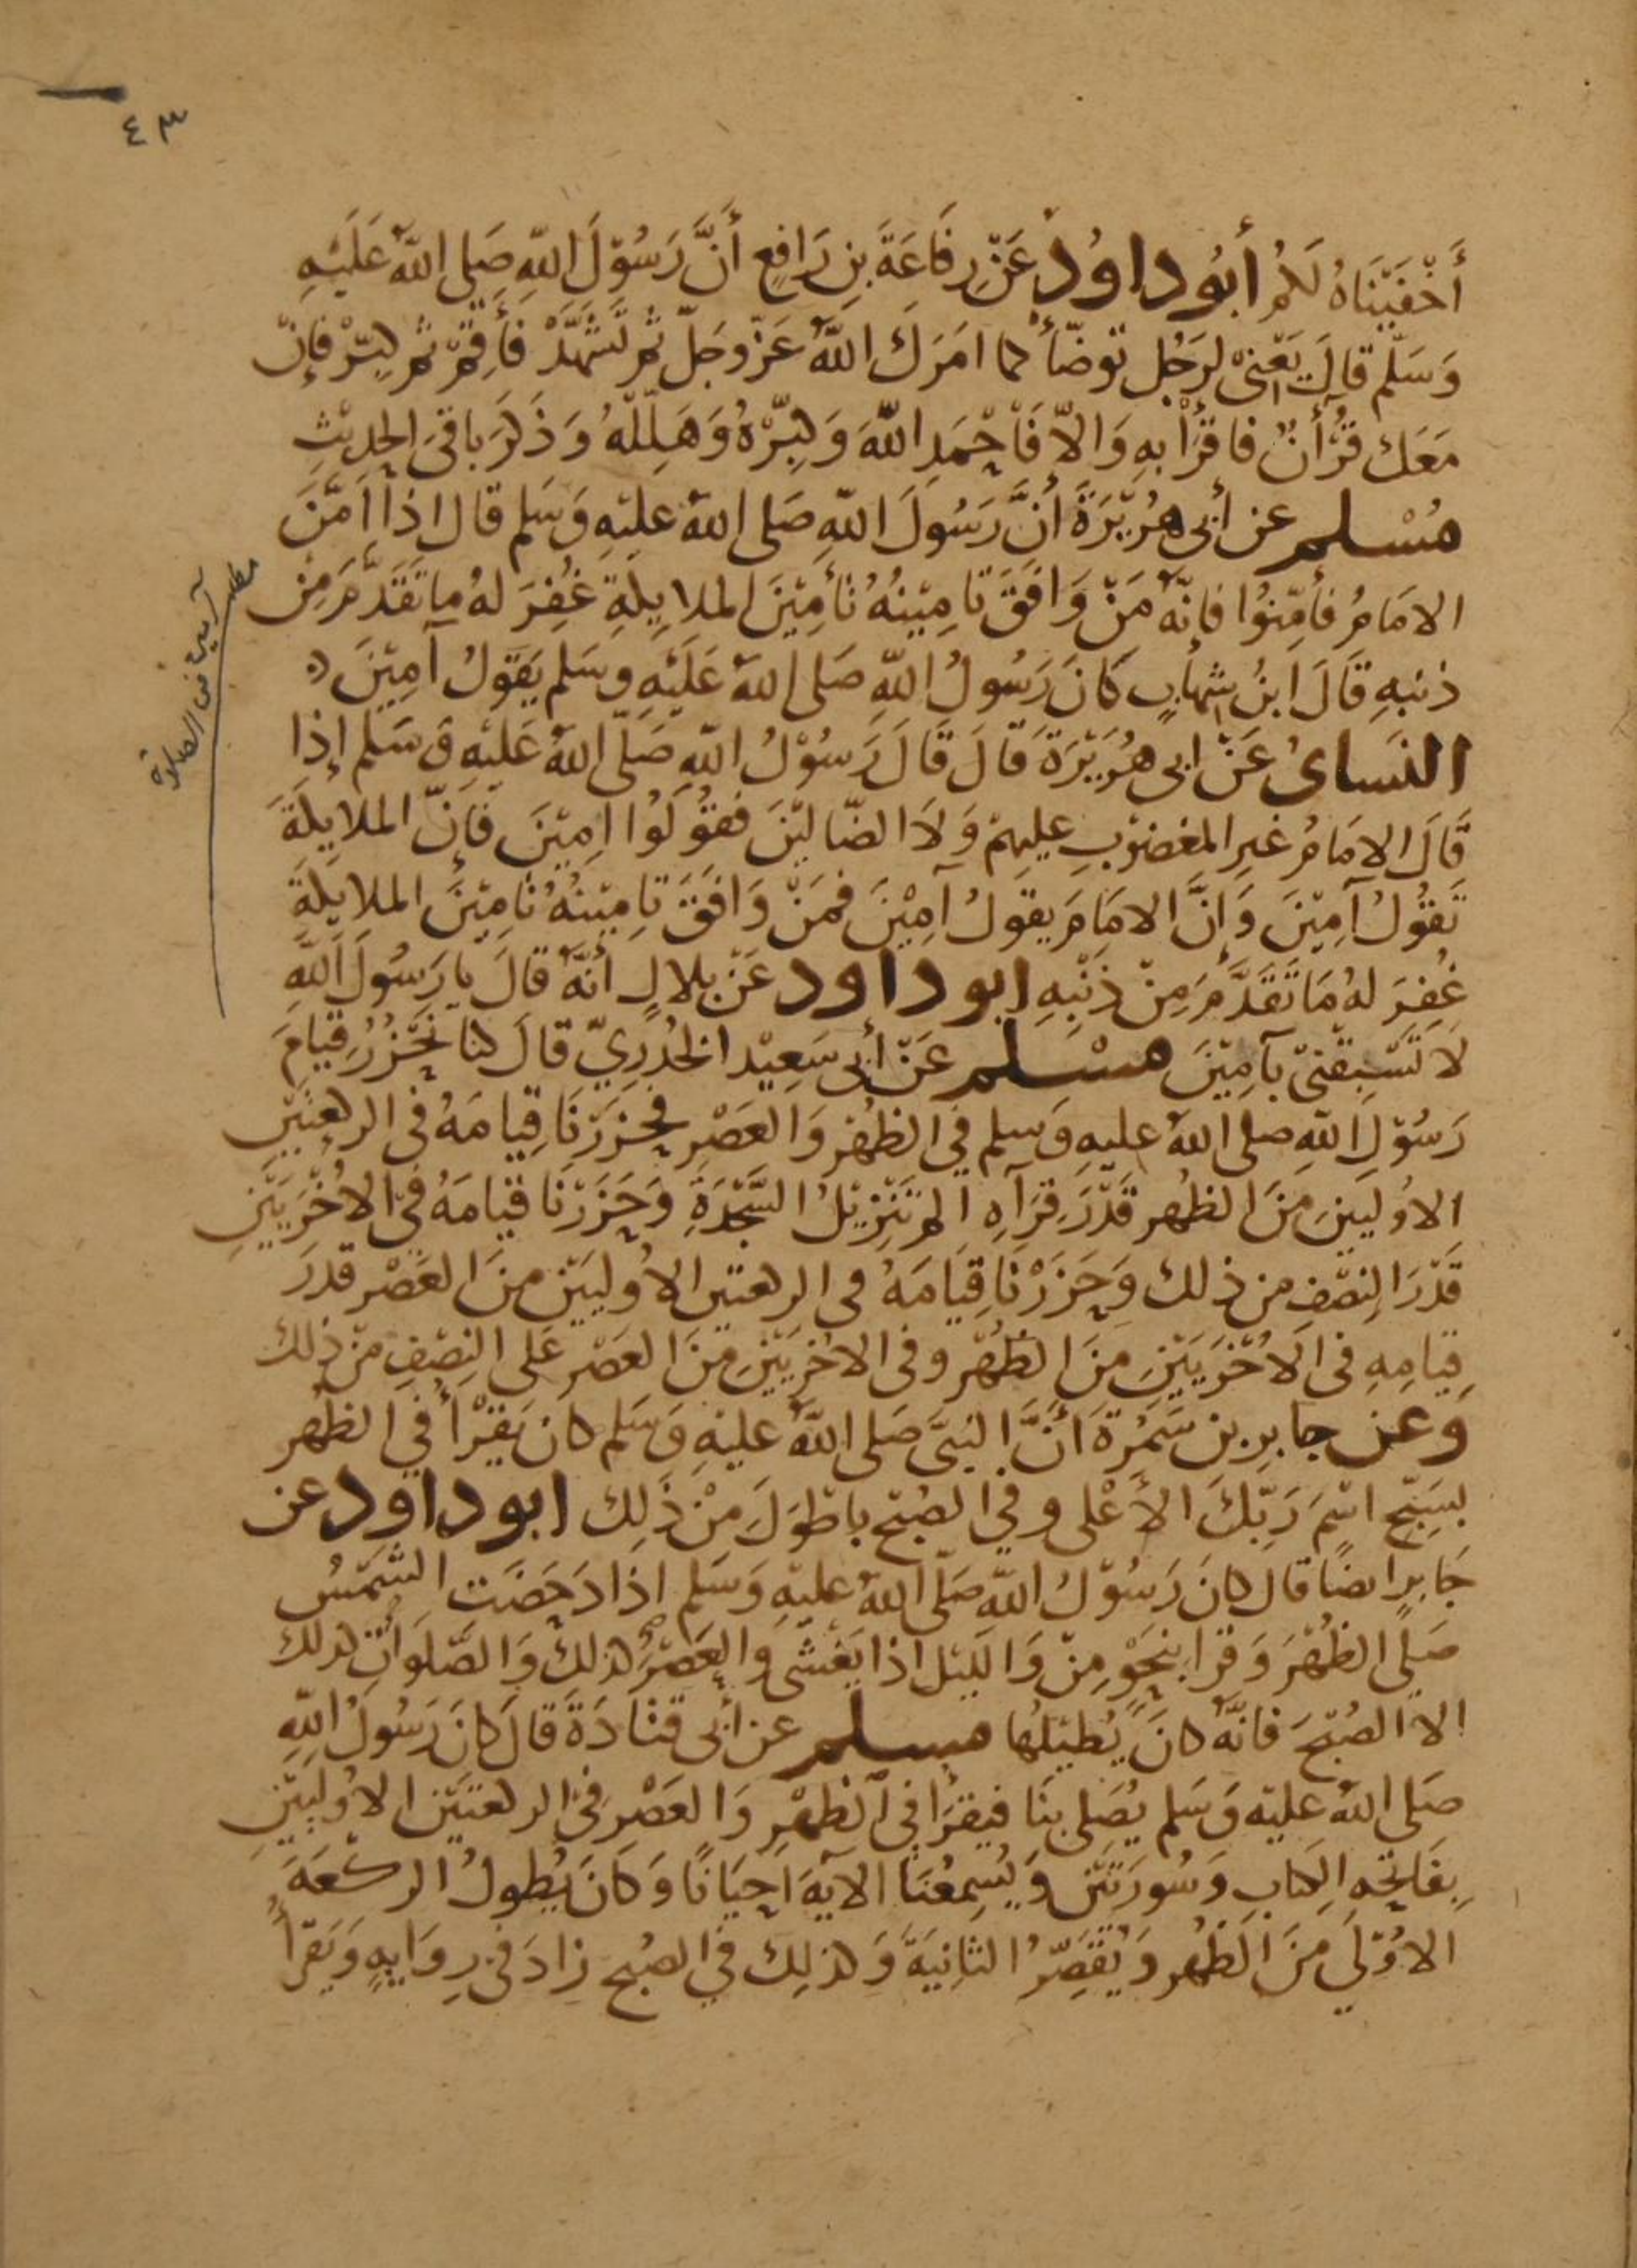 ٤٣
أَخْفَيْنَاهُ لَكُمْ أَبُو دَاوُدْ عَنْ رِفَاعَةَ بِنِ رَافِعٍ أَنَّ رَسُوْلَ اللّٰهِ صَلى اللّٰهُ عَلَيْهِ
وَسَلّم قالَ يَعْنىْ لِرَجُل توضّأ كما امَرَكَ اللّٰهُ عَزّ وجَلّ ثم تَشَهَّدْ فَأقِمْ ثم كبّرْ فإنْ
مَعَك قُرْأنٌ فاقْرَأْ بهِ وَالاّ فَاحْمَدِ اللّٰهَ وَكبِّرْهُ وَهَلِّلْهُ وَذَكَرَ باقىَ الحديْثِ
مُسْلم عن أبى هُرَيْرَةَ أنَّ رَسُولَ اللّٰهِ صَلى اللّٰهُ عليْهِ وَسَلم قال اذا امَّنَ
الامَامُ فأمِّنوُا فإنّهُ مَنْ وَافَقَ تَامِيْنُهُ تأمِيْنَ الملايكَةِ غُفِرَ لهُ ما تَقَدَّمَ مِنْ
ذنبهِ قَالَ ابنُ شِهَابٍ كَانَ رَسُولُ اللّٰهِ صَلى اللّٰهُ عَلَيْهِ وسَلم يَقوْلُ آمِيْنَ
النسَائ عَنْ ابى هُرَيْرَة قَالَ قَالَ رَسُوْلُ اللّٰهِ صَلّى اللّٰهُ عَلَيْهِ وَسَلم إذا
قَالَ الامَامُ غيرِ المغضوْبِ عليهمْ وَلاَ الضّاليْنَ فقوُلوُا امِيْنَ فإنّ الملايكَةَ
تَقوُلُ آمِيْنَ وَإنَّ الامَامَ يقولُ آمِيْنَ فمَنْ وَافَقَ تامِيْنُهُ تامِيْنَ الملايكَةِ
غُفِرَ لهُ مَا تَقَدَّمَ مِنْ ذَنْبِهِ ابو داود عَنْ بلالٍ أنّهُ قالَ يا رَسُولَ اللّٰهِ
لاَ تَسْبِقنىْ بآمِيْنَ مسْلم عَنْ أبى سَعِيْد الخُدْرِيّ قالَ كنا نَحْزُرُ قيامَ
رَسُوْلِ اللّٰهِ صلى اللّٰهُ عليهِ وَسلم فِي الظُهْرِ وَالعَصْرِ فحزَرْنَا قِيامَهُ فى الركعتَيْنِ
الاوُليَيْنِ مِنَ الظُهر قَدْرَ قرَآهِ الم تَنزيْلُ السَّجْدَةِ وَحَزَرْنَا قيامَهُ فىْ الاخْرَيَيْنِ
قَدْرَ النِصْفِ من ذلك وَحَزَرْنَا قِيَامَهُ فى الركعتين الاوُليَيْنِ منَ العَصْر قدرَ
قِيامِهِ فى الاخْرَيَيْنِ مِنَ الظُهْر وفى الاخْرَيَيْنِ مِنَ العَصْر عَلى النِصْفِ مِنْ ذلك
وَعن جابر بن سَمُرةَ أنَّ النبىَّ صَلى اللّٰهُ عليْهِ وَسَلم كانَ يَقْرَأُ في الظُهْر
بسَبّحِ اسْمَ رَبِّكَ الأعْلى وفي الصُبْح باطْوَلَ مِنْ ذَلِك ابو داوُد عن
جَابرٍ ايضًا قال كانَ رَسُوْلُ اللّٰه صَلّى اللّٰهُ عليْهِ وَسَلم اذا دَحَضَت الشمْسُ
صَلى الظُهْرَ وَقرَا بنحْوٍ مِنْ وَاللّيْل اذا يَغْشى وَالعَصْرُ كذلكَ وَالصَّلوَاتُ كذلك
الاّ الصُبْحَ فَانّهُ كانَ يُطيْلهَا مسلم عن أبى قتَادَةَ قَالَ كانَ رَسُولُ اللّٰهِ
صَلى اللّٰهُ عليْه وَسَلم يُصَلى بنَا فيقرَأ فى الظُهْرِ وَالعَصْرِ فىْ الركعتَيْنِ الاوُليَيْنِ
بِفَاتِحَهِ الكِتابِ وَسُورَتَيْنِ وَيُسمِعُنَا الآيَةَ احِيَانًا وَكَانَ يُطولُ الركعَةَ
الاوُلى مِنَ الظُهر وَيُقَصِّرُ الثانِيَةَ وَكذلِكَ في الصُبْح زادَ فى رِوَايةٍ وَيَقرَأُ
مطلب آمين فى الصلاة